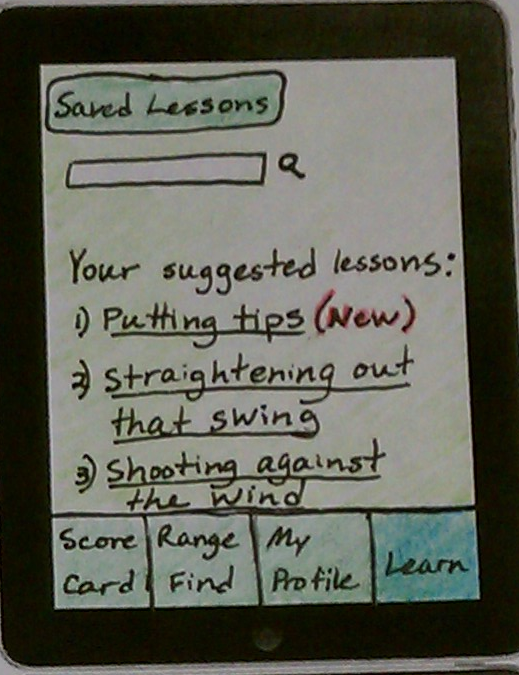 Saved Lessons
Your suggested lessons:
1) Putting tips (New)
2) Straightening out
that swing
3) Shooting against
the wind
Score Card
Range Find
My Profile
Learn